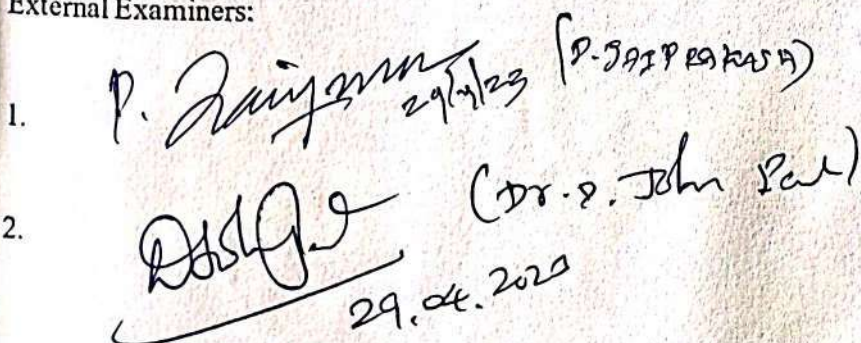 External Examiners:
1. P. 29/4/23 (P. JAIPRAKASH)
2. (Dr. P. John Paul)
29.04.2023